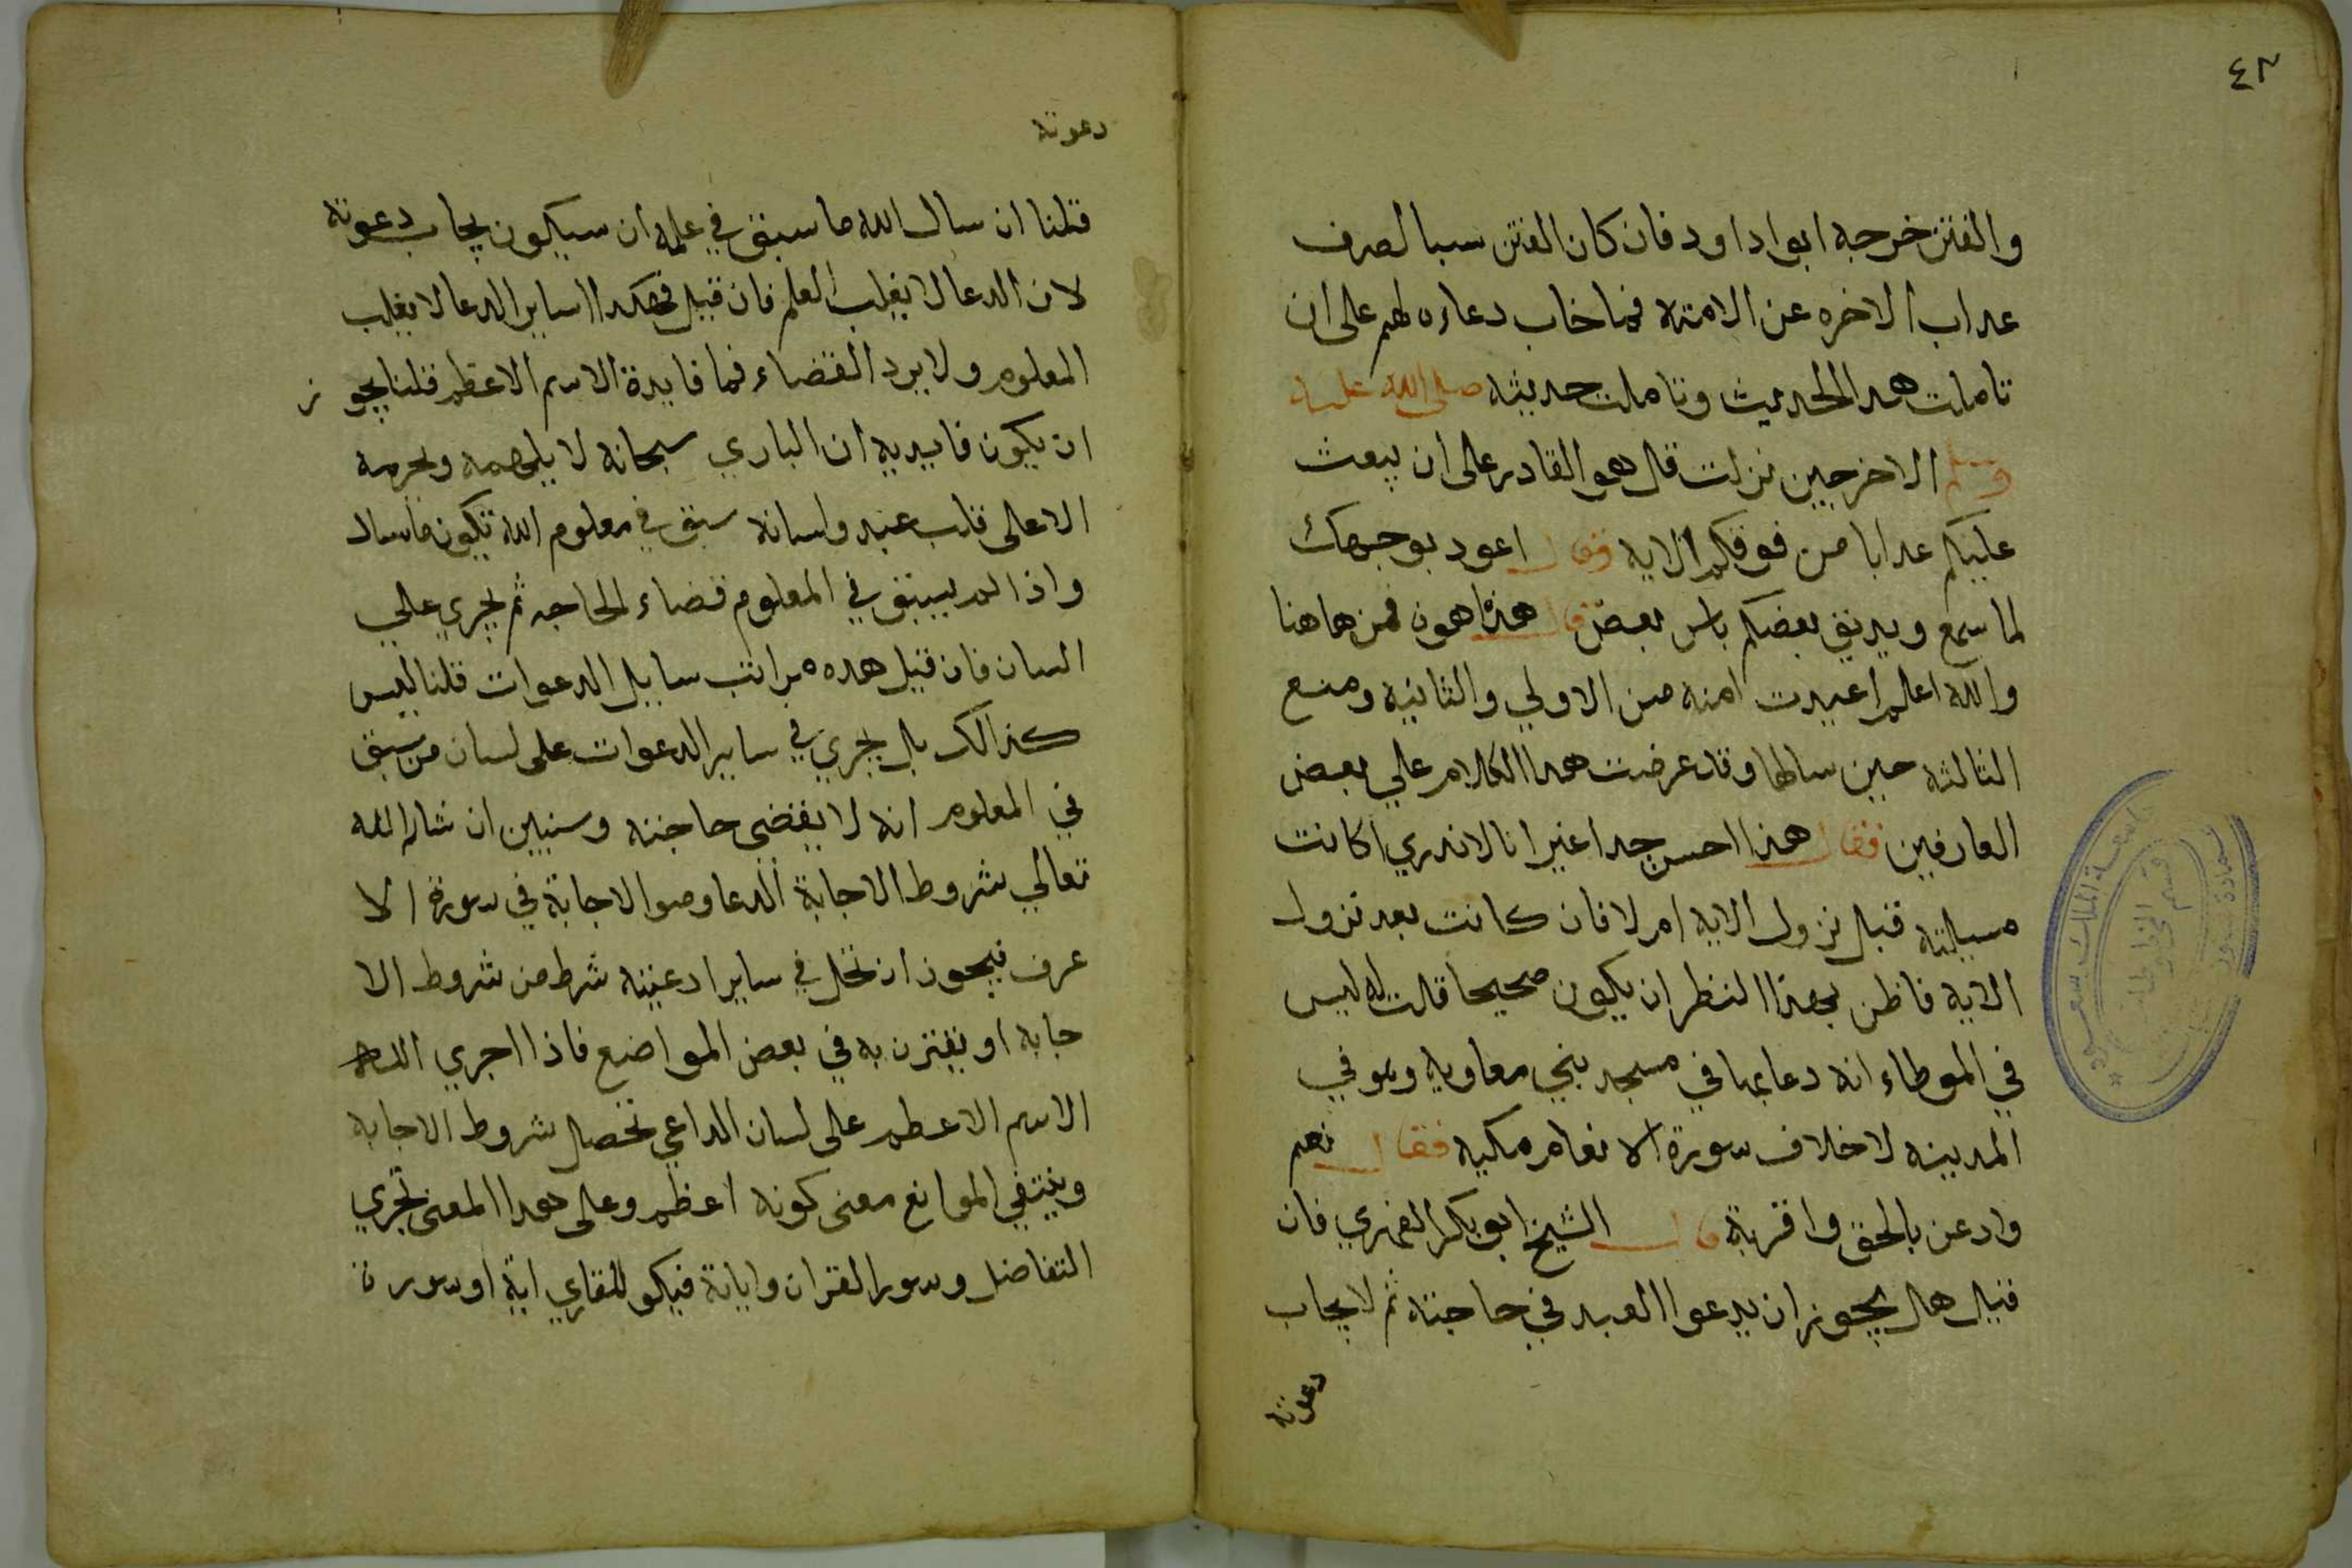 ٤٢
والفتن خرجه ابوا داود فان كان الفتن سببا لصرف
عداب الاخره عن الامته فما خاب دعاوه لهم على ان
تاملت هدا الحديث وتاملت حديثه صلى الله عليه
وسلم الاخر حين نزلت قال هو القادر على ان يبعث
عليكم عدابا من فوقكم الايه فقال اعود بوجهك
لما سمع ويديق بعضكم باس بعض قال هذا اهون فمن هاهنا
والله اعلم اعيدت امته من الاولي والثانيه ومنع
الثالثه حين سالها وقد عرضت هدا الكلام علي بعض
العارفين فقال هذا احسن جدا غير انا لا ندري اكانت
مسيلته قبل نزول الايه ام لا فان كانت بعد نزول
الايه فاظن بهذا النظر ان يكون صحيحا قلت له ليس
في الموطاء انه دعا بها في مسجد بني معاويه وهو في
المدينه لا خلاف سورة الانعام مكيه فقال نعم
وادعن بالحق واقر به قال الشيخ ابو بكر الفهري فان
قيل هل يجوز ان يدعوا العبد في حاجته ثم لا يجاب
دعوته
جامعة الملك سعود
قسم المخطوطات
دعوته
قلنا ان سال الله ما سبق في علمه ان سيكون يجاب دعوته
لان الدعا لا يغلب العلم فان قيل فهكدا اساير الدعا لا يغلب
المعلوم ولا يرد القضاء فما فايدة الاسم الاعظم قلنا يجوز
ان يكون فايديه ان الباري سبحانه لا يلهمه ويجريه
الا على قلب عبد ولسانه سبق في معلوم الله تكون ما سال
واذا لم يسبق في المعلوم قضاء الحاجه ثم يجري علي
السان فان قيل هده مراتب سايل الدعوات قلنا ليس
كذالك بل يجري في ساير الدعوات على لسان من سبق
في المعلوم انه لا يقضى حاجته وسنبين ان شاء الله
تعالي شروط الاجابة الدعا وصوا الاجابة في سورة الا
عرف فيجوز ان تختل في ساير ادعيته شرط من شروط الا
جابه او يقترن به في بعض المواضع فاذا اجري الله
الاسم الاعظم على لسان الداعي تحصل شروط الاجابه
وينتفي الموانع معنى كونه اعظم وعلى هدا المعنى تجري
التفاضل وسور القران واياته فيكو للقاري اية او سورة